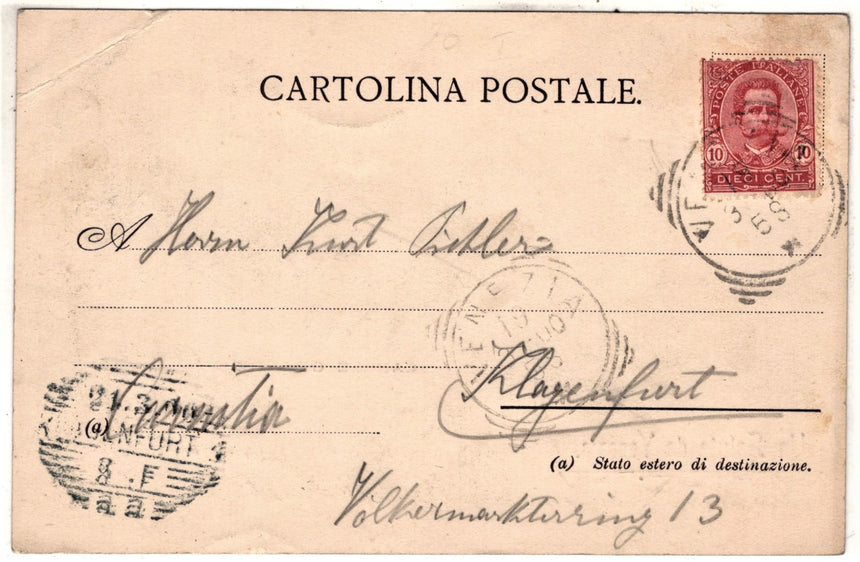 CARTOLINA POSTALE.
POSTE ITALIANE
10 10
DIECI CENT.
A Herrn Kurt Pichler
VENEZIA
19
Klagenfurt
21.3
(a)
8.F
aa
(a) Stato estero di destinazione.
Völkermarkterring 13